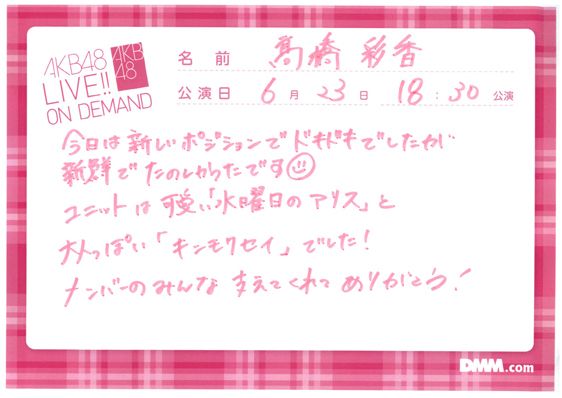 AKB48
LIVE!!
ON DEMAND
AKB
48
名前 髙橋 彩香
公演日 6月23日 18:30公演
今日は新しいポジションでドキドキでしたが
新鮮でたのしかったです
ユニットは可愛い「水曜日のアリス」と
大人っぽい「キンモクセイ」でした!
メンバーのみんな支えてくれてありがとう!
DMM.com